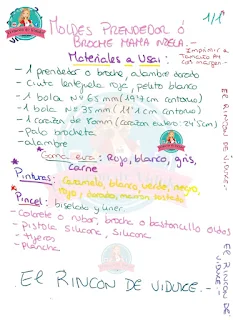 1/1
MOLDES PRENDEDOR Ó
BROCHE MAMA NOELA.-
Imprimir a
tamaño A4
con margen.-
Materiales a usar:
- 1 prendedor o broche, alambre dorado
- Cinta lentejuela roja, pelito blanco
- 1 bola Nº 65 mm (19'7 cm contorno)
- 1 bola Nº 35 mm (11'1 cm contorno)
- 1 corazón de 80mm (corazón entero: 24'5cm)
- Palo brocheta
- alambre
Goma eva: Rojo, blanco, gris,
carne
Pinturas: Caramelo, blanco, verde, negro,
rojo, dorado, marrón tostado
Pincel: biselado y liner
- Colorete o rubor, broche o bastoncillo oídos
- Pistola silicona, silicona
- tijeras
- plancha
El RINCON DE VIDUKE.-
El RINCON DE VIDUKE.-
El RINCON DE VIDUKE.-